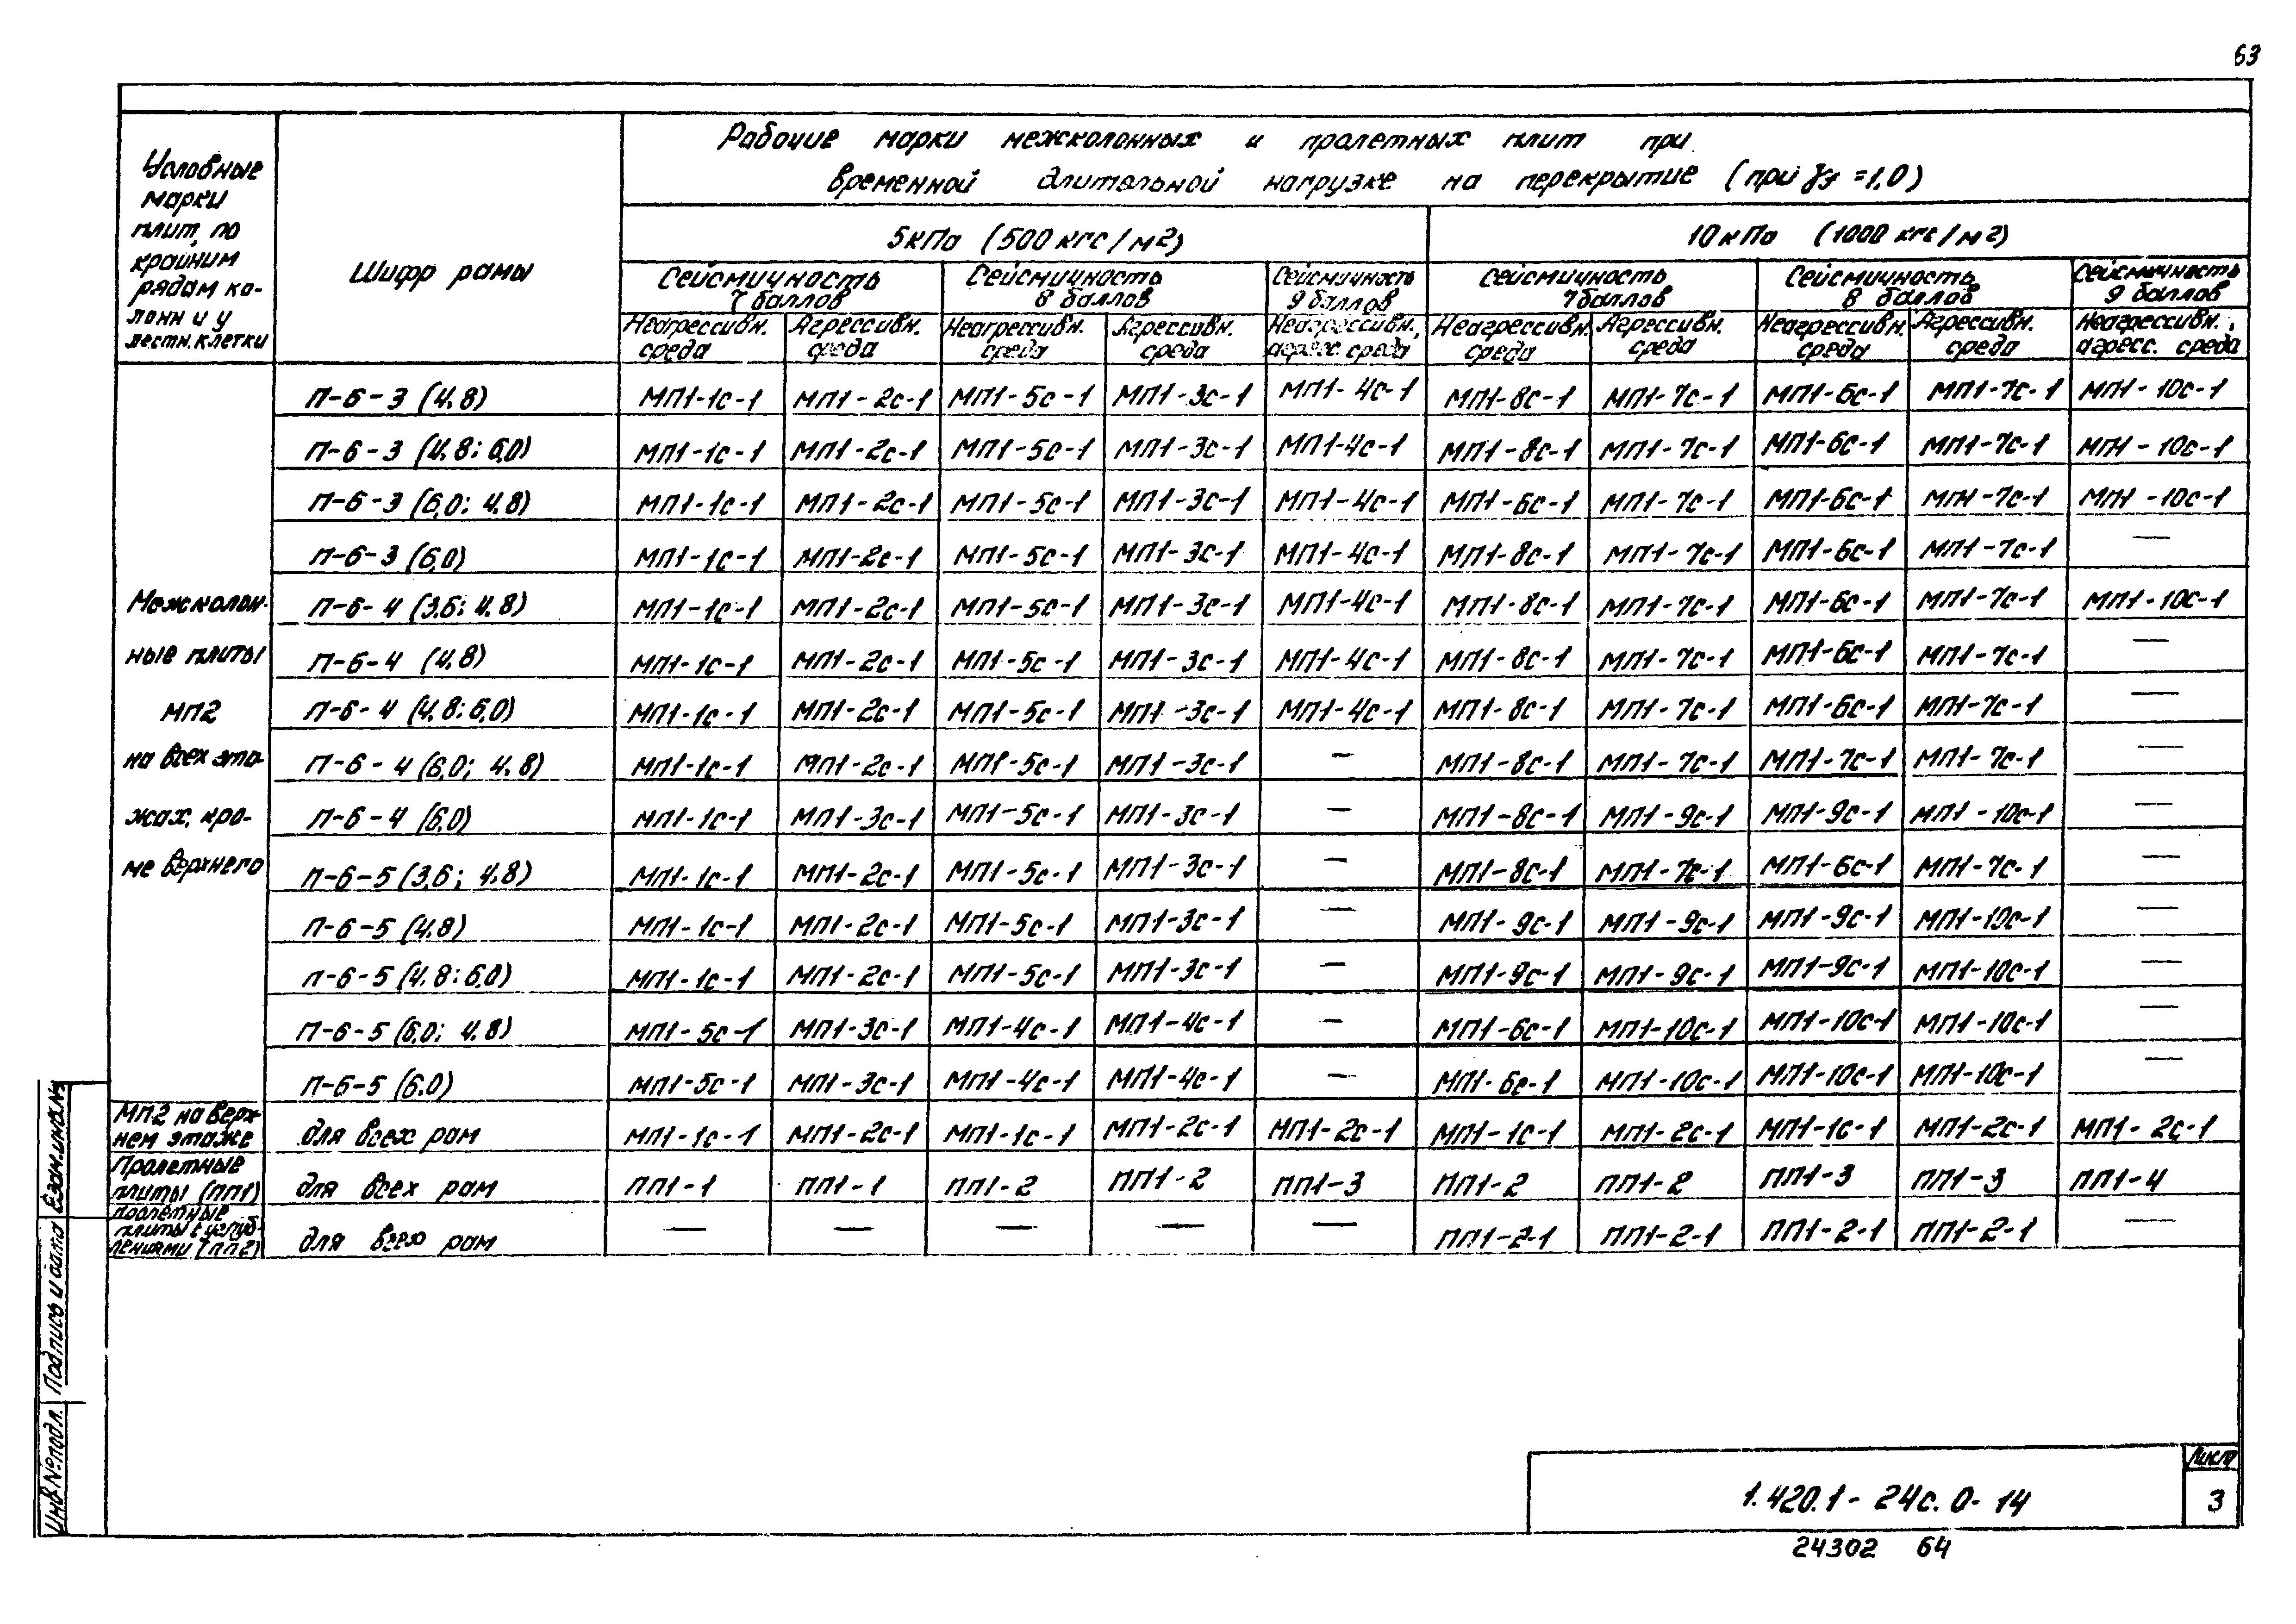 63
Условные марки плит, по крайним рядам колонн и у лестн. клетки
Шифр рамы
Рабочие марки межколонных и пролетных плит при
временной длительной нагрузке на перекрытие (при γf =1,0)
5кПа (500 кгс/м2) 10 кПа (1000 кгс/м2)
Сейсмичность 7 баллов Сейсмичность 8 баллов Сейсмичность 9 баллов Сейсмичность 7 баллов Сейсмичность 8 баллов Сейсмичность 9 баллов
Неагрессивн. среда Агрессивн. среда Неагрессивн. среда Агрессивн. среда Неагрессивн., агресс. среда Неагрессивн. среда Агрессивн. среда Неагрессивн. среда Агрессивн. среда Неагрессивн., агресс. среда
Межколон-
ные плиты
МП2
на всех эта-
жах, кро-
ме верхнего
П-6-3 (4.8) МП1-1с-1 МП1-2с-1 МП1-5с-1 МП1-3с-1 МП1-4с-1 МП1-8с-1 МП1-7с-1 МП1-6с-1 МП1-7с-1 МП1-10с-1
П-6-3 (4.8; 6,0) МП1-1с-1 МП1-2с-1 МП1-5с-1 МП1-3с-1 МП1-4с-1 МП1-8с-1 МП1-7с-1 МП1-6с-1 МП1-7с-1 МП1-10с-1
П-6-3 (6,0; 4.8) МП1-1с-1 МП1-2с-1 МП1-5с-1 МП1-3с-1 МП1-4с-1 МП1-6с-1 МП1-7с-1 МП1-6с-1 МП1-7с-1 МП1-10с-1
П-6-3 (6,0) МП1-1с-1 МП1-2с-1 МП1-5с-1 МП1-3с-1 МП1-4с-1 МП1-8с-1 МП1-7с-1 МП1-6с-1 МП1-7с-1 —
П-6-4 (3,6; 4.8) МП1-1с-1 МП1-2с-1 МП1-5с-1 МП1-3с-1 МП1-4с-1 МП1-8с-1 МП1-7с-1 МП1-6с-1 МП1-7с-1 МП1-10с-1
П-6-4 (4.8) МП1-1с-1 МП1-2с-1 МП1-5с-1 МП1-3с-1 МП1-4с-1 МП1-8с-1 МП1-7с-1 МП1-6с-1 МП1-7с-1 —
П-6-4 (4,8; 6,0) МП1-1с-1 МП1-2с-1 МП1-5с-1 МП1-3с-1 МП1-4с-1 МП1-8с-1 МП1-7с-1 МП1-6с-1 МП1-7с-1 —
П-6-4 (6,0; 4.8) МП1-1с-1 МП1-2с-1 МП1-5с-1 МП1-3с-1 — МП1-8с-1 МП1-7с-1 МП1-7с-1 МП1-7с-1 —
П-6-4 (6,0) МП1-1с-1 МП1-3с-1 МП1-5с-1 МП1-3с-1 — МП1-8с-1 МП1-9с-1 МП1-9с-1 МП1-10с-1 —
П-6-5 (3,6; 4.8) МП1-1с-1 МП1-2с-1 МП1-5с-1 МП1-3с-1 — МП1-8с-1 МП1-7с-1 МП1-6с-1 МП1-7с-1 —
П-6-5 (4.8) МП1-1с-1 МП1-2с-1 МП1-5с-1 МП1-3с-1 — МП1-9с-1 МП1-9с-1 МП1-9с-1 МП1-10с-1 —
П-6-5 (4.8; 6,0) МП1-1с-1 МП1-2с-1 МП1-5с-1 МП1-3с-1 — МП1-9с-1 МП1-9с-1 МП1-9с-1 МП1-10с-1 —
П-6-5 (6,0; 4.8) МП1-5с-1 МП1-3с-1 МП1-4с-1 МП1-4с-1 — МП1-6с-1 МП1-10с-1 МП1-10с-1 МП1-10с-1 —
П-6-5 (6.0) МП1-5с-1 МП1-3с-1 МП1-4с-1 МП1-4с-1 — МП1-6с-1 МП1-10с-1 МП1-10с-1 МП1-10с-1 —
МП2 на верхнем этаже для всех рам МП1-1с-1 МП1-2с-1 МП1-1с-1 МП1-2с-1 МП1-2с-1 МП1-1с-1 МП1-2с-1 МП1-1с-1 МП1-2с-1 МП1-2с-1
Пролетные плиты (ПП1) для всех рам ПП1-1 ПП1-1 ПП1-2 ПП1-2 ПП1-3 ПП1-2 ПП1-2 ПП1-3 ПП1-3 ПП1-4
Пролетные плиты с углублениями (ПП2) для всех рам — — — — — ПП1-2-1 ПП1-2-1 ПП1-2-1 ПП1-2-1 —
Инв.№подл. Подпись и дата Взам.инв.№
1.420.1-24с.0-14
Лист
3
24302 64